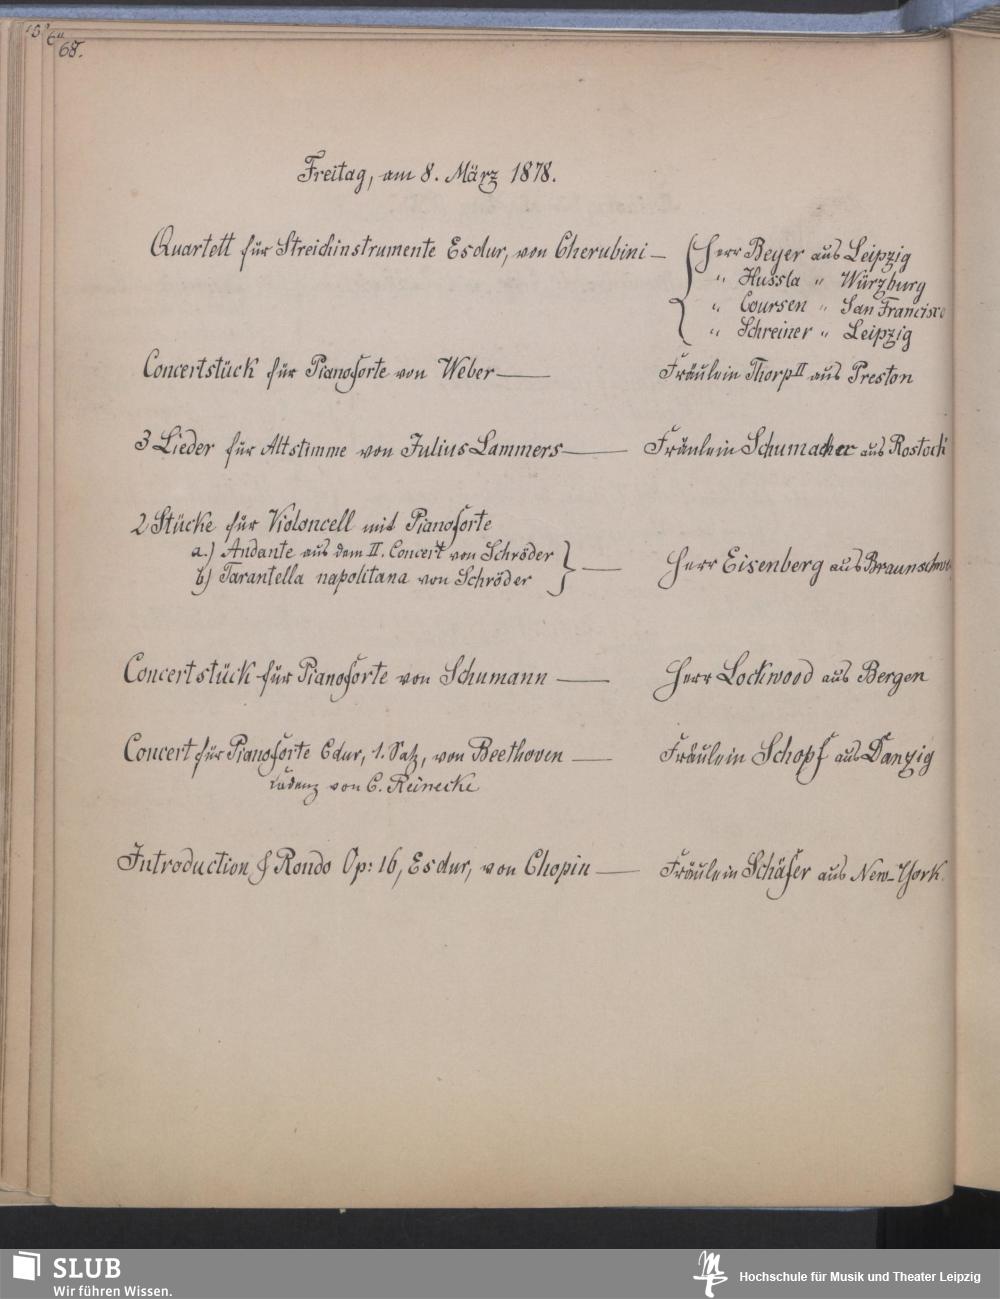 68.
Freitag, am 8. März 1878.
Quartett für Streichinstrumente Esdur, von Cherubini — Herr Beyer aus Leipzig
" Hussla " Würzburg
" Coursen " San Francisco
" Schreiner " Leipzig
Concertstück für Pianoforte von Weber — Fräulein Thorp II aus Preston
3 Lieder für Altstimme von Julius Lammers — Fräulein Schumacher aus Rostock
2 Stücke für Violoncell mit Pianoforte
a.) Andante aus dem II. Concert von Schröder
b) Tarantella napolitana von Schröder } — Herr Eisenberg aus Braunschwei
Concertstück für Pianoforte von Schumann — Herr Lockwood aus Bergen
Concert für Pianoforte Cdur, 1. Satz, von Beethoven — Fräulein Schopf aus Danzig
Cadenz von C. Reinecke
Introduction & Rondo Op: 16, Esdur, von Chopin — Fräulein Schäfer aus New-York.
SLUB
Wir führen Wissen.
Hochschule für Musik und Theater Leipzig